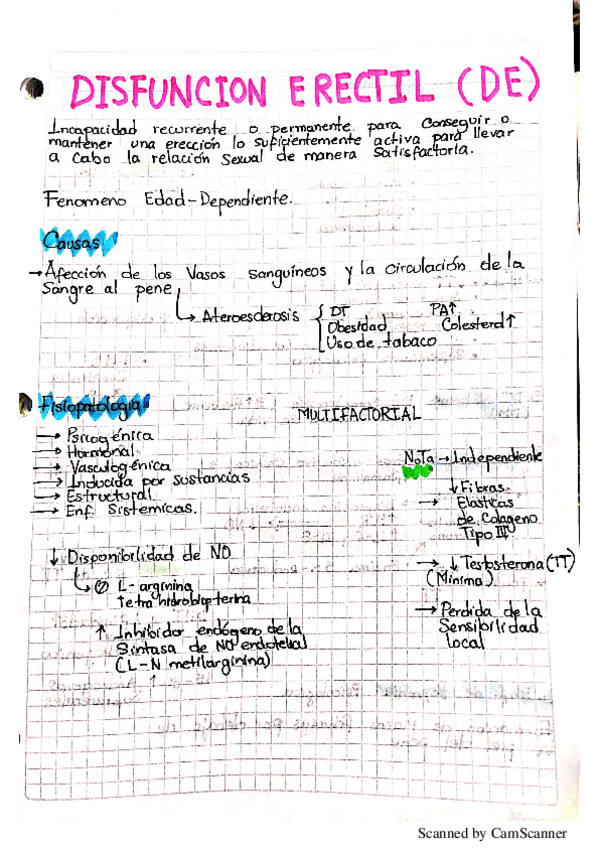 DISFUNCION ERECTIL (DE)
Incapacidad recurrente o permanente para conseguir o
mantener una erección lo suficientemente activa para llevar
a cabo la relación sexual de manera satisfactoria.
Fenomeno Edad-Dependiente.
Causas
→Afección de los Vasos sanguíneos y la circulación de la
Sangre al pene
↳ Ateroesclerosis { DT PA↑
Obesidad Colesterol↑
Uso de tabaco
Fisiopatología MULTIFACTORIAL
→ Psicogénica
→ Hormonal
→ Vasculogénica
→ Inducida por sustancias
→ Estructural
→ Enf. Sistemicas.
↓ Disponibilidad de NO
↳ L-arginina
tetrahidrobiopterina
↑ Inhibidor endógeno de la
Sintasa de NO endotelial
(L-N metilarginina)
↑
Nota →Independiente
→ ↓Fibras
Elasticas
de Colageno
Tipo III
→ ↓Testosterona (TT)
(Minima)
→ Perdida de la
Sensibilidad
local
Scanned by CamScanner